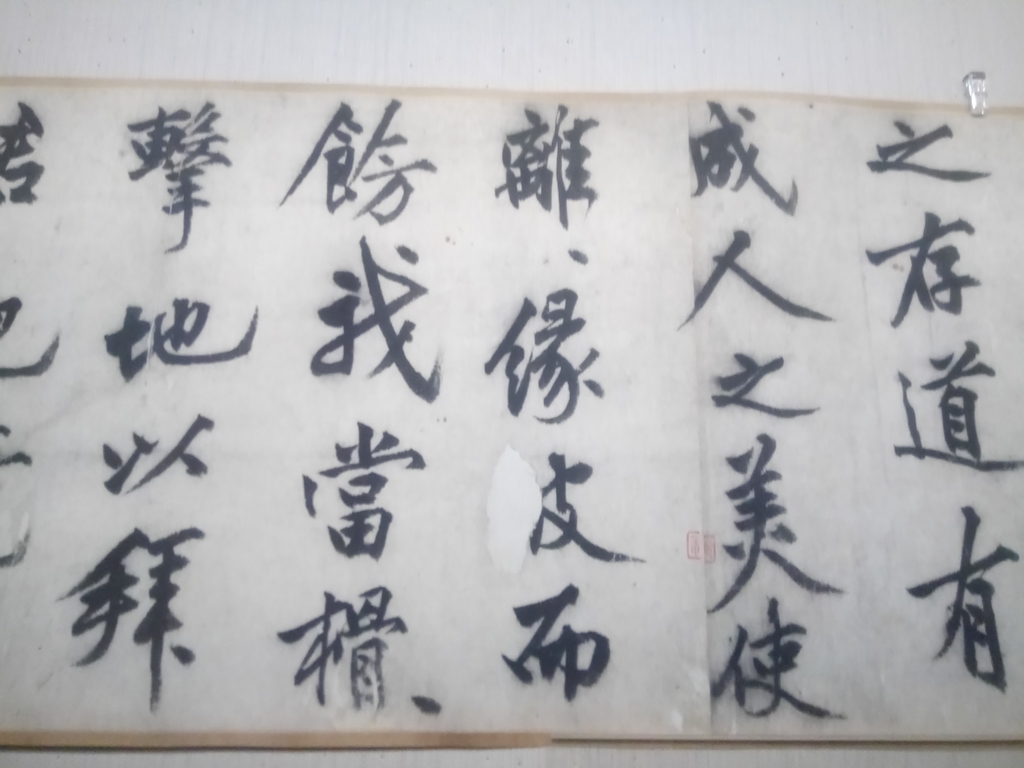 之存道有
成人之美使
離、緣而
我當榾、
擊地以拜